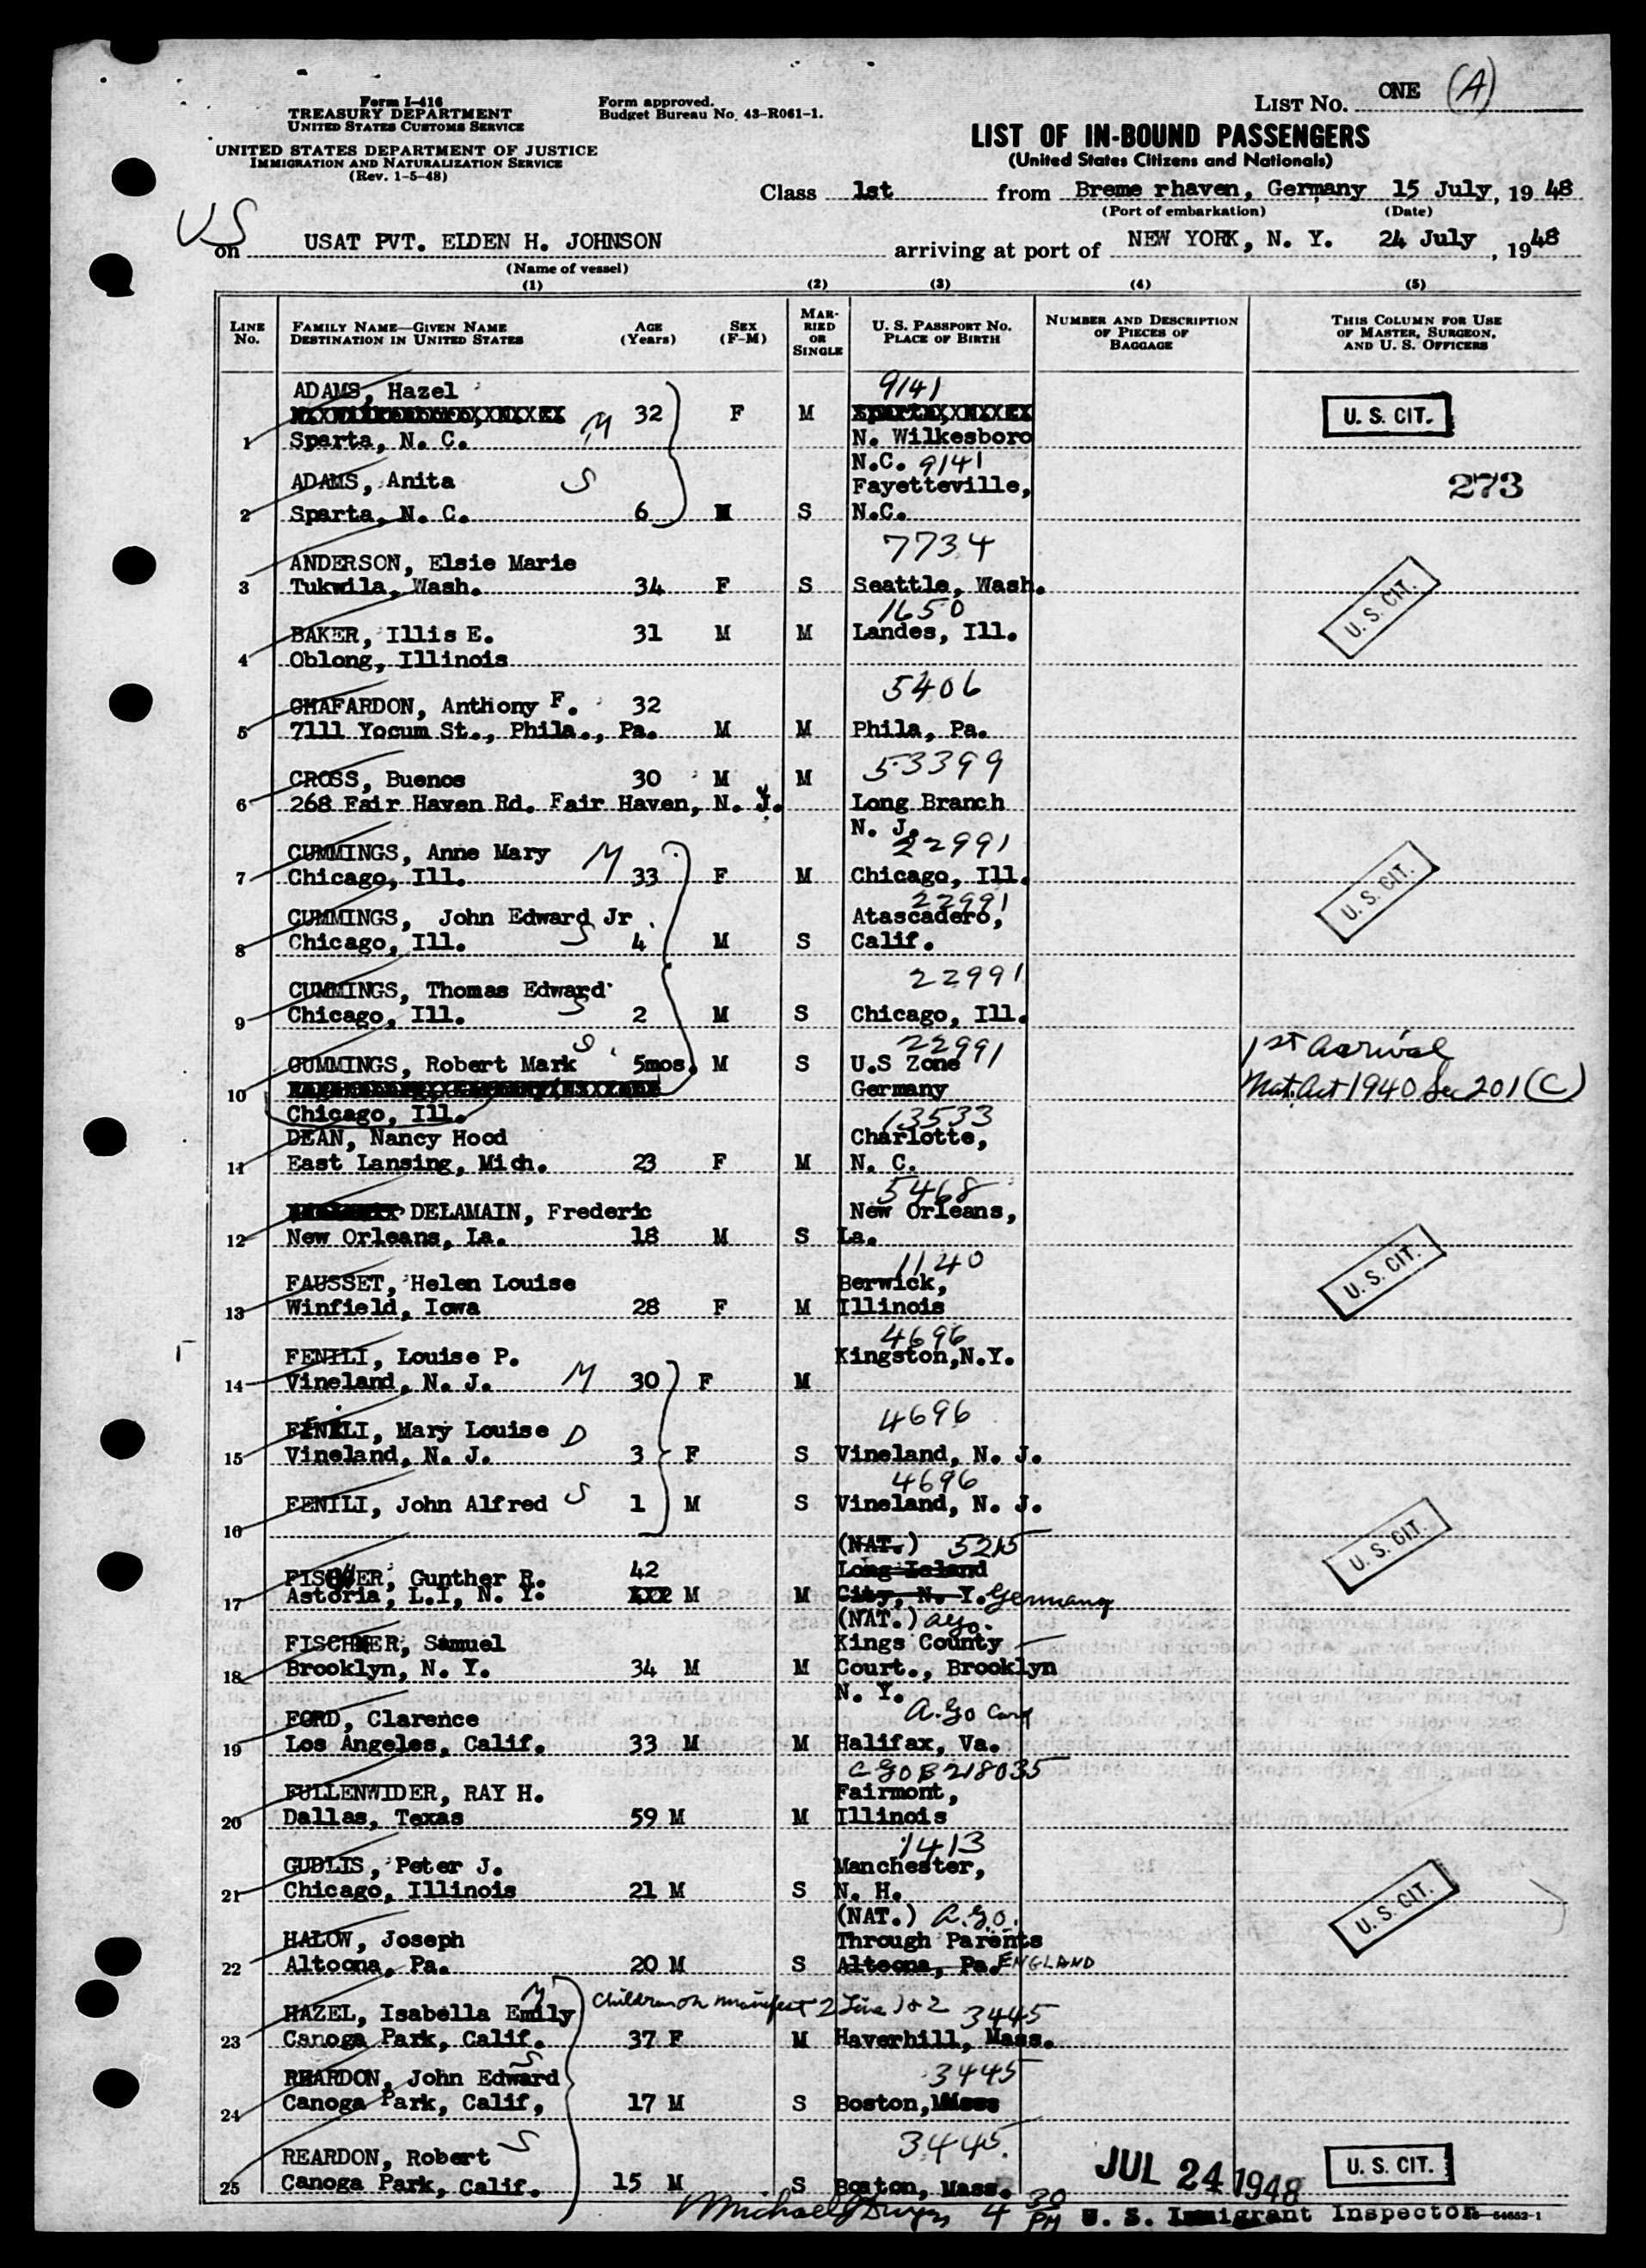 LIST No. ONE (A)
Form I-416
TREASURY DEPARTMENT
UNITED STATES CUSTOMS SERVICE
Form approved.
Budget Bureau No. 43-R061-1.
UNITED STATES DEPARTMENT OF JUSTICE
IMMIGRATION AND NATURALIZATION SERVICE
(Rev. 1-5-48)
LIST OF IN-BOUND PASSENGERS
(United States Citizens and Nationals)
Class 1st from Breme rhaven, Germany 15 July, 19 48
(Port of embarkation) (Date)
US
on USAT PVT. ELDEN H. JOHNSON arriving at port of NEW YORK, N. Y. 24 July, 1948
(Name of vessel)
(1) (2) (3) (4) (5)
LINE No. FAMILY NAME—GIVEN NAME DESTINATION IN UNITED STATES AGE (Years) SEX (F-M) MARRIED OR SINGLE U. S. PASSPORT No. PLACE OF BIRTH NUMBER AND DESCRIPTION OF PIECES OF BAGGAGE THIS COLUMN FOR USE OF MASTER, SURGEON, AND U. S. OFFICERS
ADAMS, Hazel 9141
32 F M U. S. CIT.
1 Sparta, N. C. M N. Wilkesboro
N.C. 9141
ADAMS, Anita S Fayetteville, 273
2 Sparta, N. C. 6 S N.C.
7734
ANDERSON, Elsie Marie
3 Tukwila, Wash. 34 F S Seattle, Wash. U. S. CIT.
1650
BAKER, Illis E. 31 M M Landes, Ill.
4 Oblong, Illinois
5406
CHAFARDON, Anthony F. 32
5 7111 Yocum St., Phila., Pa. M M Phila, Pa.
53399
CROSS, Buenos 30 M M
6 268 Fair Haven Rd. Fair Haven, N. J. Long Branch
N. J.
22991
CUMMINGS, Anne Mary M
7 Chicago, Ill. 33 F M Chicago, Ill. U. S. CIT.
22991
CUMMINGS, John Edward Jr. Atascadero,
8 Chicago, Ill. S 4 M S Calif.
22991
CUMMINGS, Thomas Edward
9 Chicago, Ill. S 2 M S Chicago, Ill.
S 22991 1st Arrival
CUMMINGS, Robert Mark 5mos. M S U.S Zone
10 Germany Nat. Act 1940 Sec 201 (C)
Chicago, Ill. 13533
DEAN, Nancy Hood Charlotte,
11 East Lansing, Mich. 23 F M N. C.
5468
DELAMAIN, Frederic New Orleans,
12 New Orleans, La. 18 M S La.
1140 U. S. CIT.
FAUSSET, Helen Louise Berwick,
13 Winfield, Iowa 28 F M Illinois
4696
FENILI, Louise P. Kingston, N.Y.
14 Vineland, N. J. M 30 F M
4696
FENILI, Mary Louise D
15 Vineland, N. J. 3 F S Vineland, N. J.
4696
FENILI, John Alfred S 1 M S Vineland, N. J.
16
(NAT.) 5215 U. S. CIT.
FISCHER, Gunther R. 42 Long Island
17 Astoria, L.I, N. Y. M M City, N. Y. Germany
(NAT.) ago.
FISCHER, Samuel Kings County
18 Brooklyn, N. Y. 34 M M Court., Brooklyn
N. Y.
FORD, Clarence A.go Card
19 Los Angeles, Calif. 33 M M Halifax, Va.
AGO B218035
FULLENWIDER, RAY H. Fairmont,
20 Dallas, Texas 59 M M Illinois
1413
GUDLIS, Peter J. Manchester,
21 Chicago, Illinois 21 M S N. H. U. S. CIT.
(NAT.) a.g.o.
HALOW, Joseph Through Parents
22 Altoona, Pa. 20 M S Altoona, Pa. ENGLAND
M Children on manifest 2 Line 1 & 2 3445
HAZEL, Isabella Emily
23 Canoga Park, Calif. 37 F M Haverhill, Mass.
S 3445
REARDON, John Edward
24 Canoga Park, Calif, 17 M S Boston, Mass
3445
REARDON, Robert S
25 Canoga Park, Calif. 15 M S Boston, Mass. JUL 24 1948 U. S. CIT.
Michael J Dwyer 4 30 PM U. S. Immigrant Inspector 54652-1